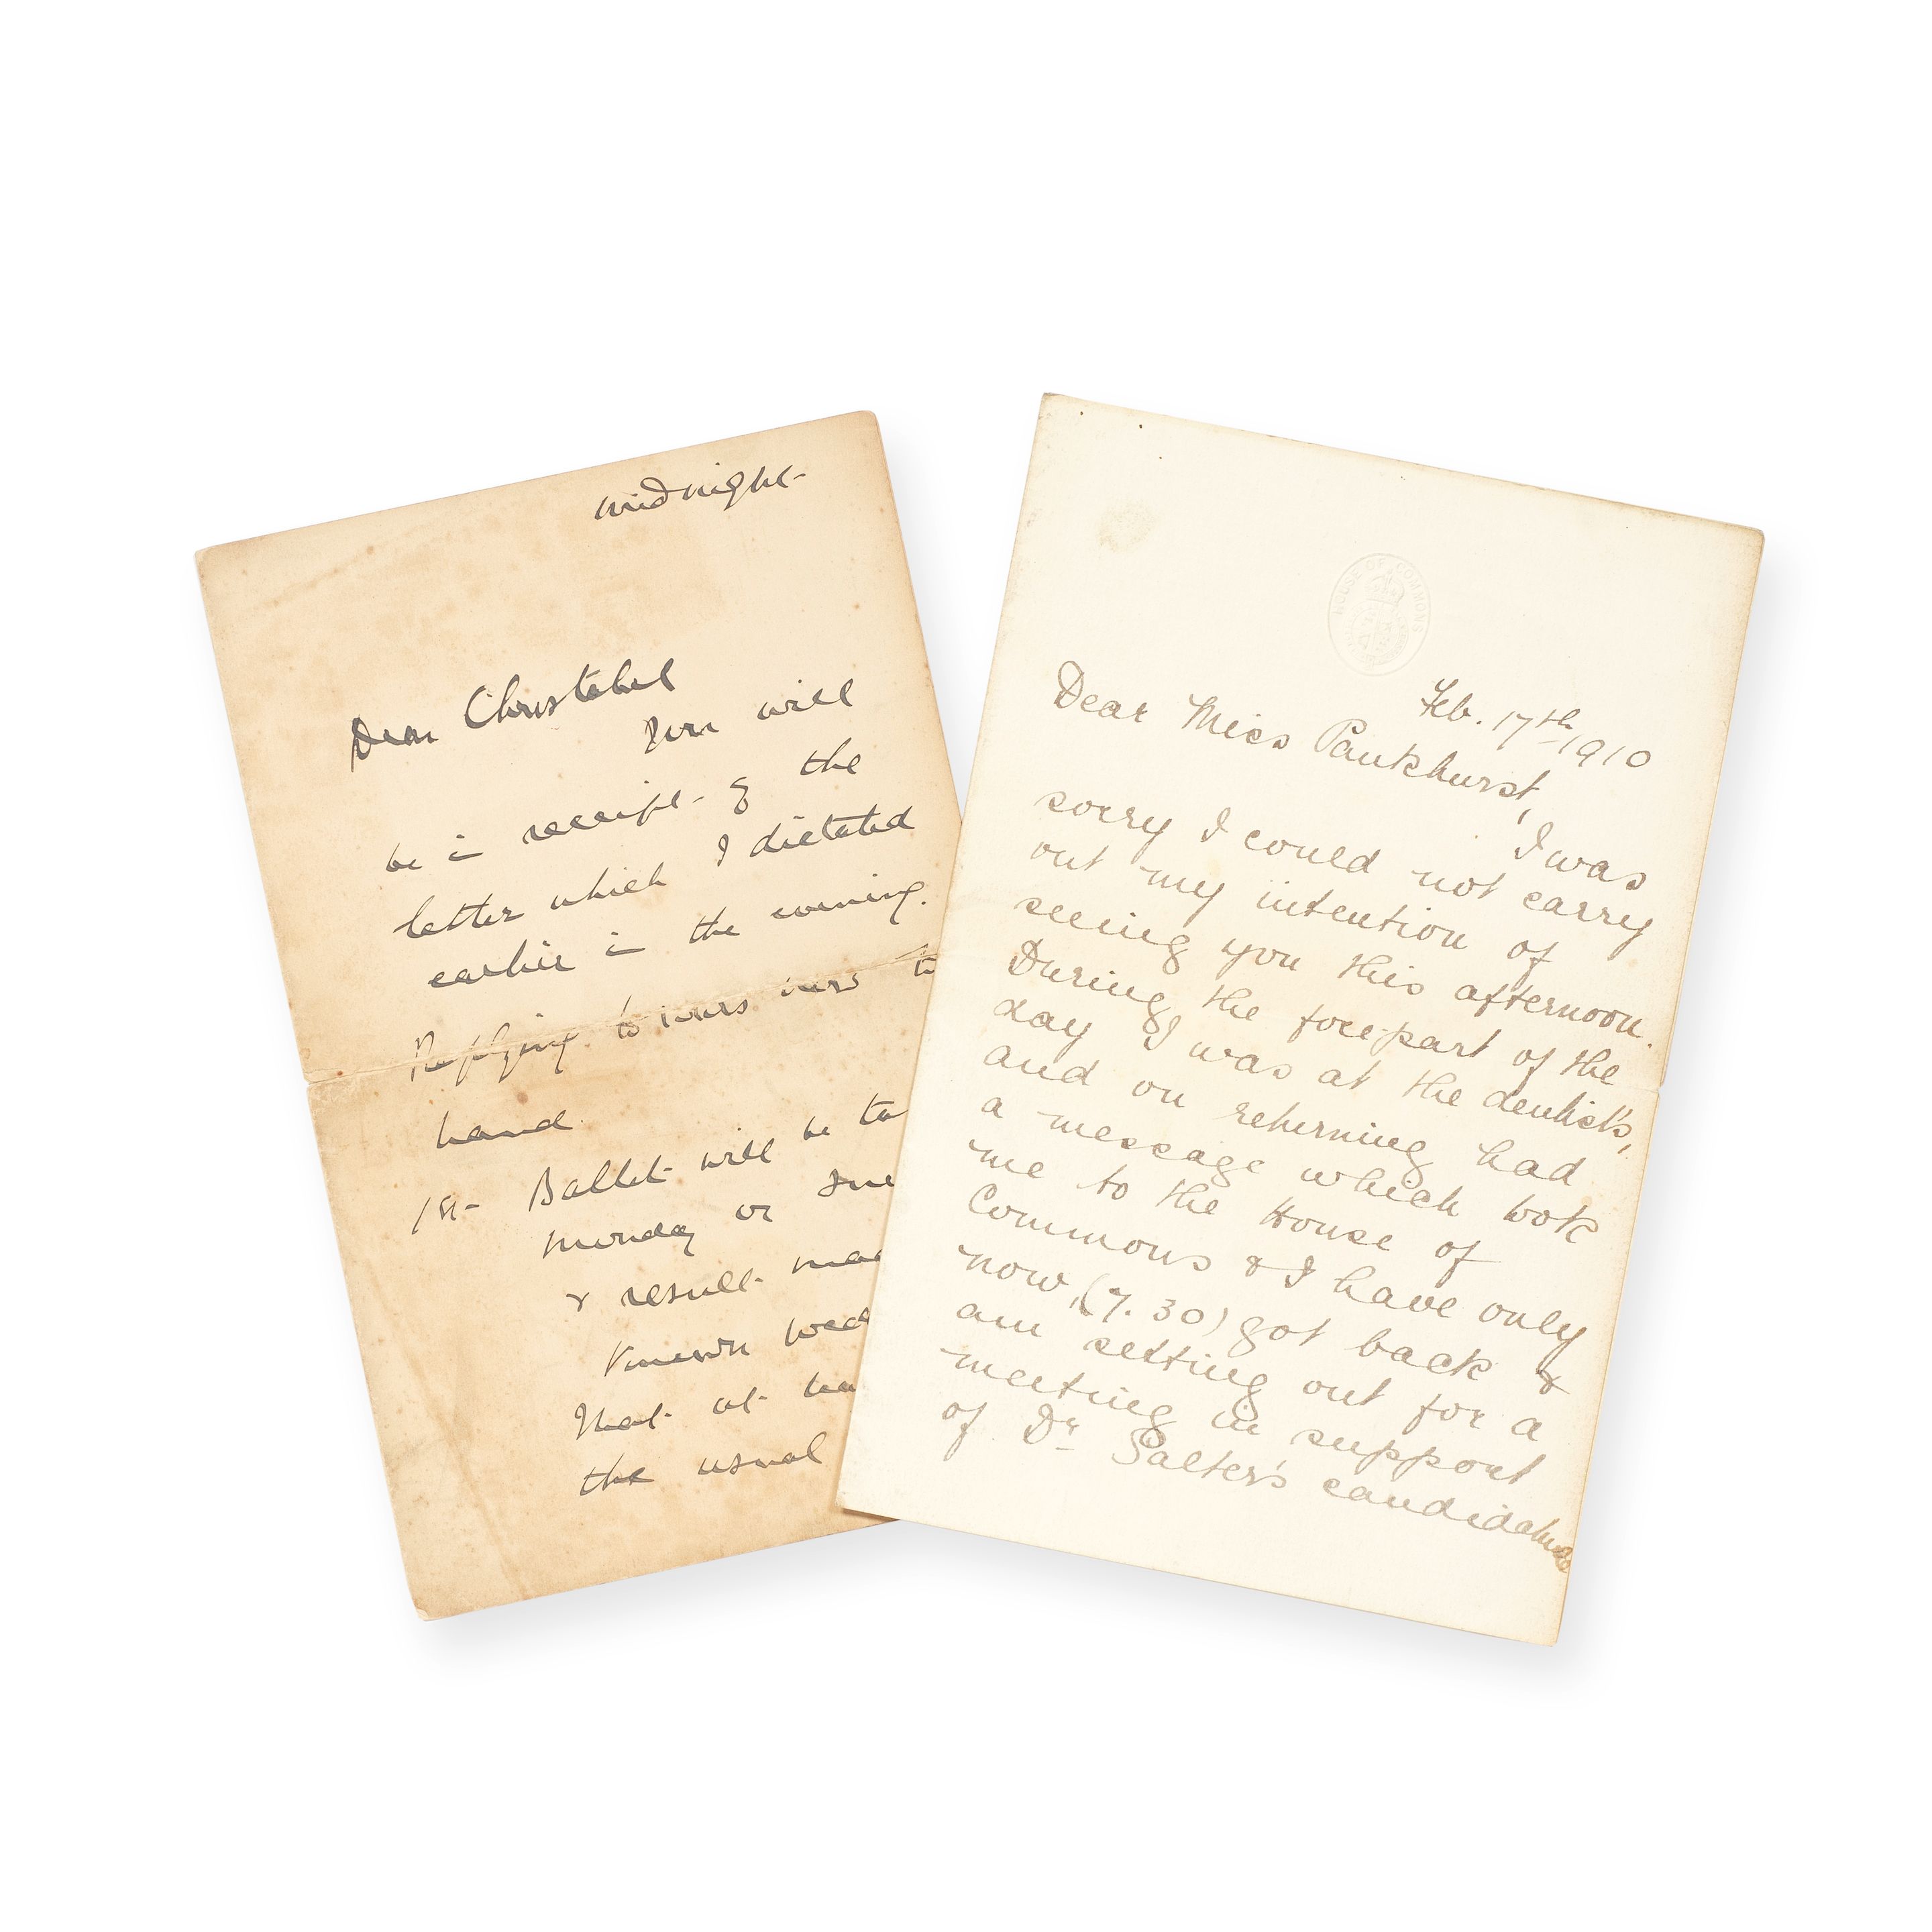 midnight
Dear Christabel
You will
be in receipt of the
letter which I dictated
earlier in the evening.
Replying to yours now to
hand.
1st Ballot will be ta
Monday or
& result mad
known Wed
that at
the usual
HOUSE OF COMMONS
Feb. 17th 1910
Dear Miss Pankhurst,
I was
sorry I could not carry
out my intention of
seeing you this afternoon.
During the fore-part of the
day I was at the dentist's,
and on returning had
a message which took
me to the House of
Commons & I have only
now, (7.30) got back &
am setting out for a
meeting in support
of Dr Salter's candidature